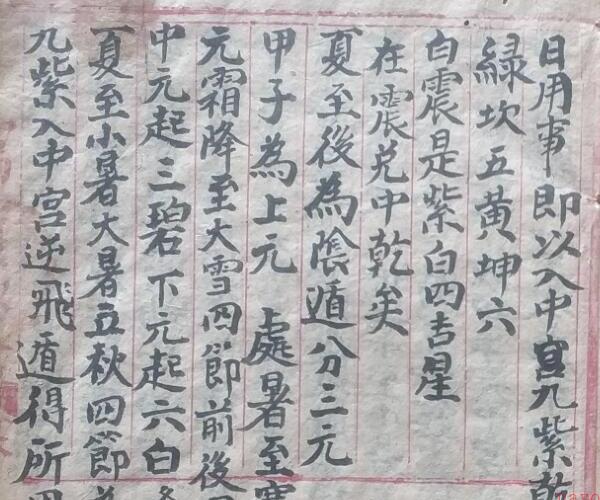 日用事即以入中宮九紫乾
綠坎五黃坤六
白震是紫白四吉星
在震兌中乾矣
夏至後為陰遁分三元
甲子為上元 處暑至寒
元霜降至大雪四節前後
中元起三碧下元起六白
夏至小暑大暑立秋四節
九紫入中宮逆飛遁得所用